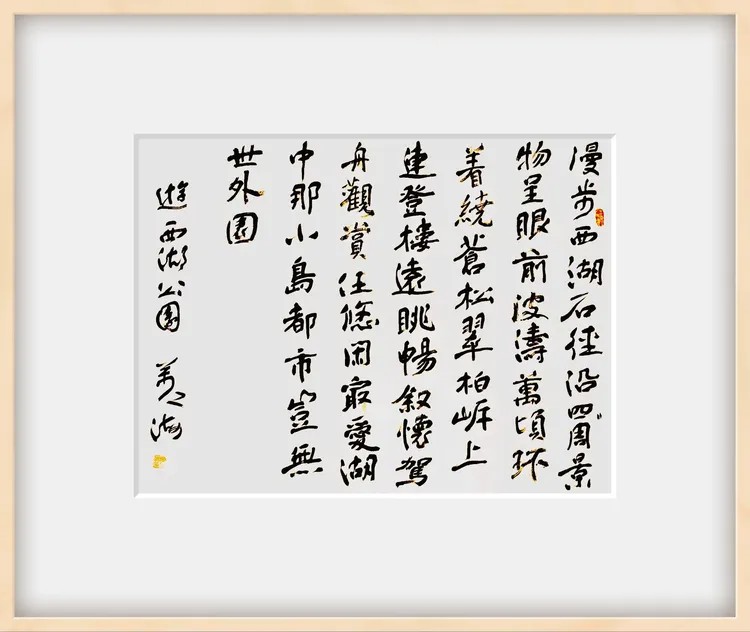 漫步西湖石徑沿四周景
物呈眼前波濤萬頃环
着繞蒼松翠柏岸上
連登樓遠眺暢叙懷駕
舟觀賞任悠闲最愛湖
中那小島都市豈無
世外園
遊西湖公園